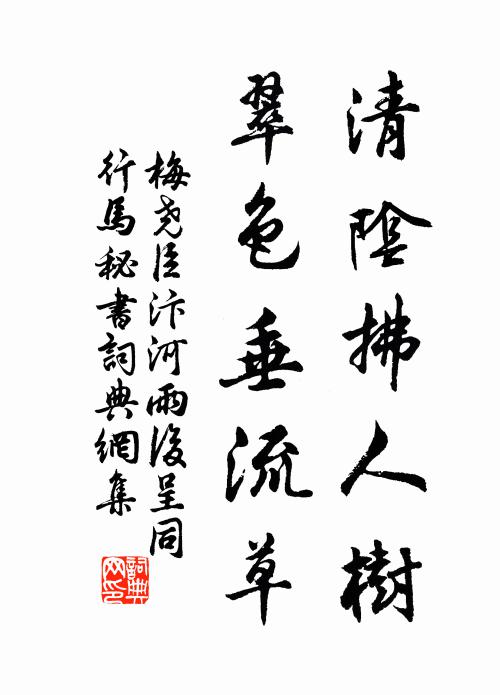 清陰拂人樹
翠色垂流草
梅堯臣汴河雨後呈同
行馬秘書詞典網集
詞典
网印